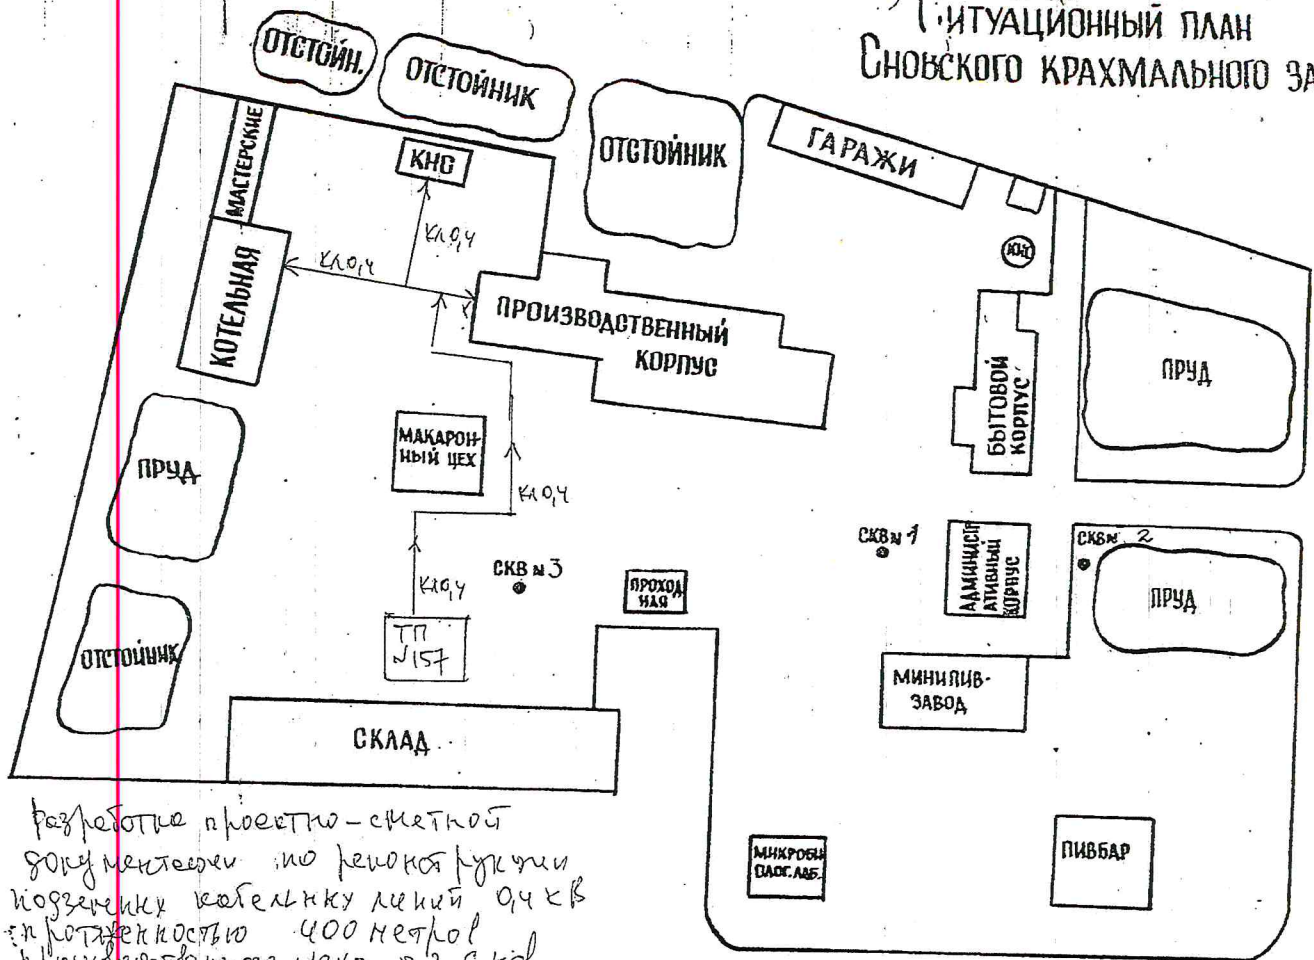 СИТУАЦИОННЫЙ ПЛАН
СНОВСКОГО КРАХМАЛЬНОГО ЗА
ОТСТОЙН.
ОТСТОЙНИК
ОТСТОЙНИК
ГАРАЖИ
МАСТЕРСКИЕ
КНС
КНС
КЛ0,4
КЛ0,4
КОТЕЛЬНАЯ
ПРОИЗВОДСТВЕННЫЙ
КОРПУС
ПРУД
БЫТОВОЙ
КОРПУС
МАКАРОН-
НЫЙ ЦЕХ
ПРУД
КЛ0,4
СКВ№1
АДМИНИСТР
АТИВНЫЙ
КОРПУС
СКВ№ 2
СКВ №3
ПРОХОД
НАЯ
ПРУД
КЛ0,4
ТП
№157
ОТСТОЙНИК
МИНИПИВ-
ЗАВОД
СКЛАД
МИКРОБИ
ОЛОГ.ЛАБ.
ПИВБАР
разработка проектно-сметной
документации по реконструкции
подземных кабельных линий 0,4 кВ
протяженностью 400 метров